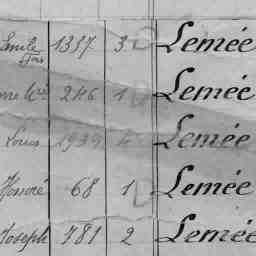 Emile fils 1337 3 Lemée
246 1 Lemée
Louis 1939 4 Lemée
Honoré 68 1 Lemée
Joseph 781 2 Lemée